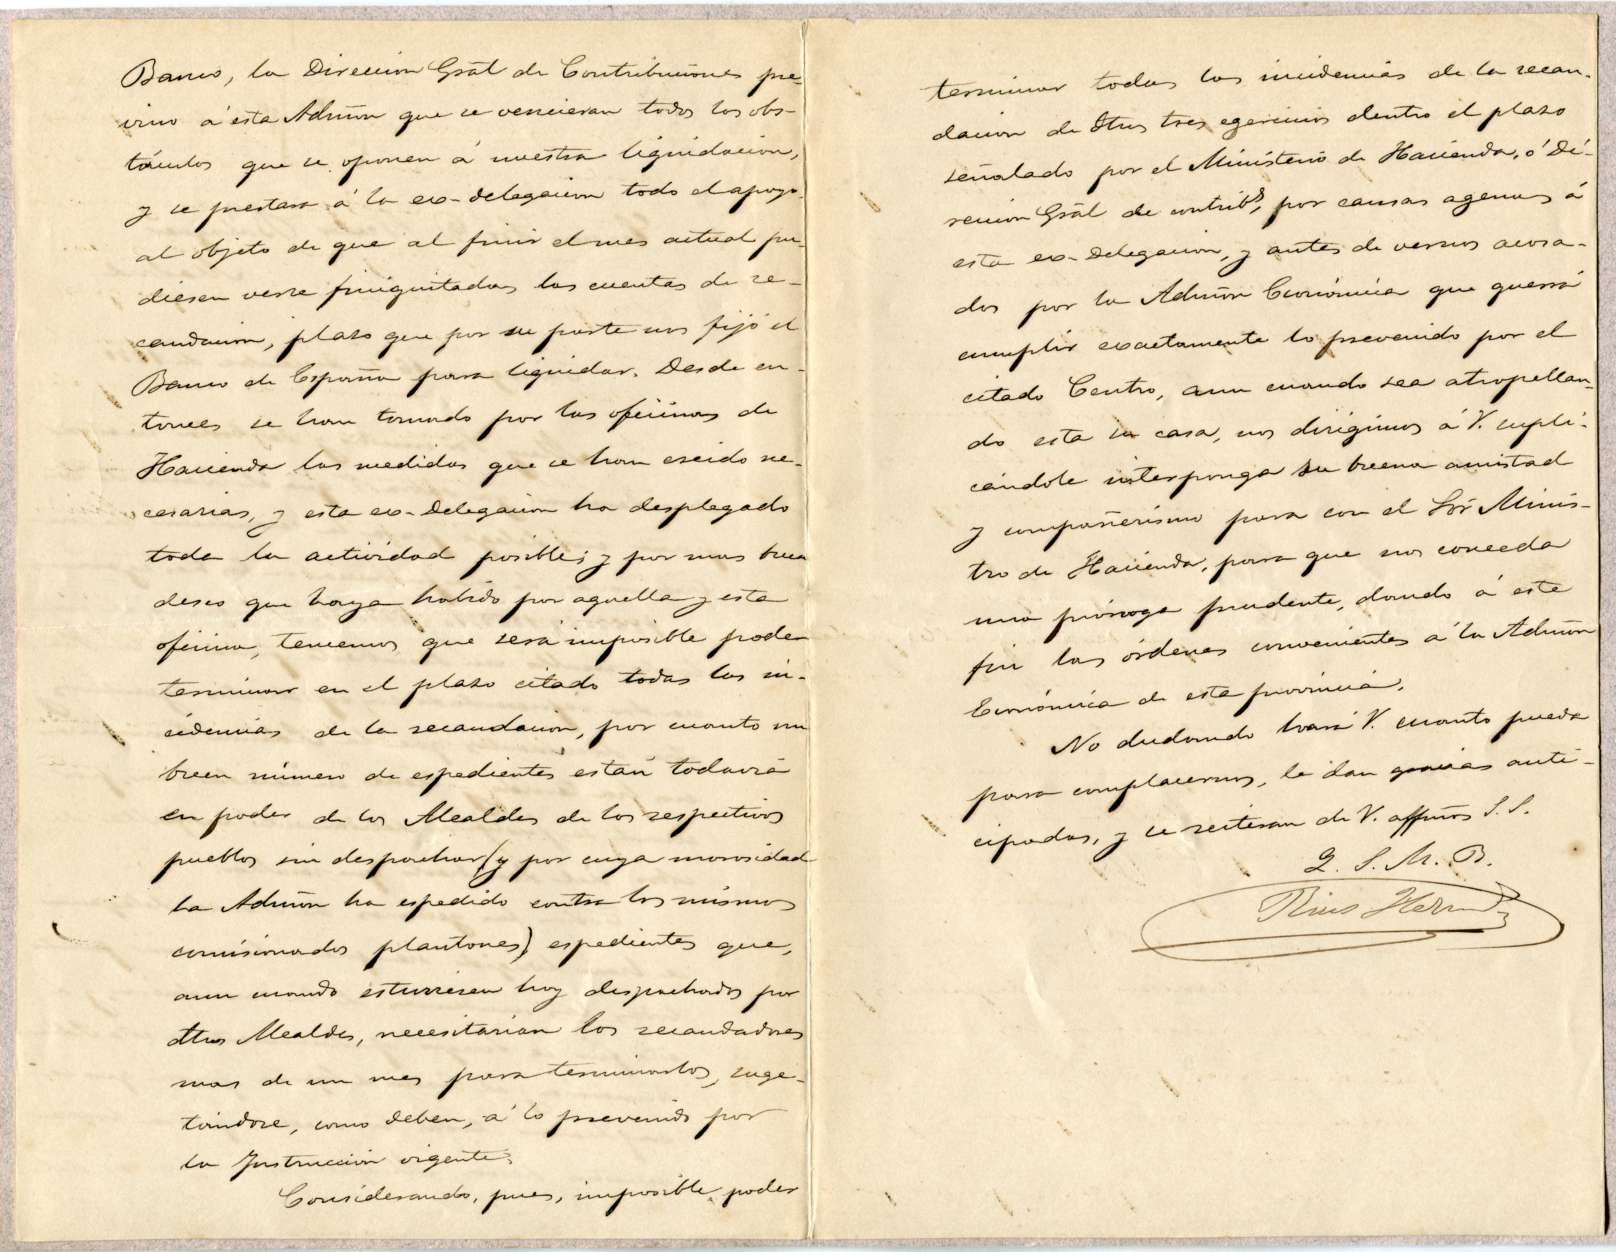 Banco, la Direccion Gral de Contribuciones pre-
vino á esta Admon que se vencieran todos los obs-
táculos que se oponen á nuestra liquidacion,
y se prestara á la ex-delegacion todo el apoyo
al objeto de que al finir el mes actual pu-
diesen verse finiquitadas las cuentas de re-
caudacion, plazo que por su parte nos fijó el
Banco de España para liquidar. Desde en-
tonces se han tomado por las oficinas de
Hacienda las medidas que se han creido ne-
cesarias, y esta ex-delegacion ha desplegado
toda la actividad posible; y por mas buen
deseo que haya habido por aquella y esta
oficina, tenemos que será imposible poder
terminar en el plazo citado todas las in-
cidencias de la recaudacion, por cuanto un
buen número de espedientes están todavia
en poder de los Alcaldes de los respectivos
pueblos sin despachar (y por cuya morosidad
la Admon ha espedido contra los mismos
comisionados plantones) espedientes que,
aun cuando estuviesen hoy despachados por
dhos Alcaldes, necesitarian los recaudadores
mas de un mes para terminarlos, suge-
tándose, como deben, á lo prevenido por
la Instruccion vigente.
Considerando, pues, imposible poder
terminar todas las incidencias de la recau-
dacion de dhos tres egercicios dentro el plazo
señalado por el Ministerio de Hacienda, ó Di-
reccion Gral de contribs, por causas agenas á
esta ex-delegacion, y antes de vernos acosa-
dos por la Admon Económica que querrá
cumplir exactamente lo prevenido por el
citado Centro, aun cuando sea atropellan-
do esta su casa, nos dirigimos á V. supli-
cándole interponga su buena amistad
y compañerismo para con el Sór Minis-
tro de Hacienda, para que nos conceda
una próroga prudente, dando á este
fin las órdenes convenientes á la Admon
Económica de esta provincia.
No dudando hará V. cuanto pueda
para complacernos, le dan gracias anti-
cipadas, y se reiteran de V. affmos S. S.
Q. S. M. B.
Rius Hernz